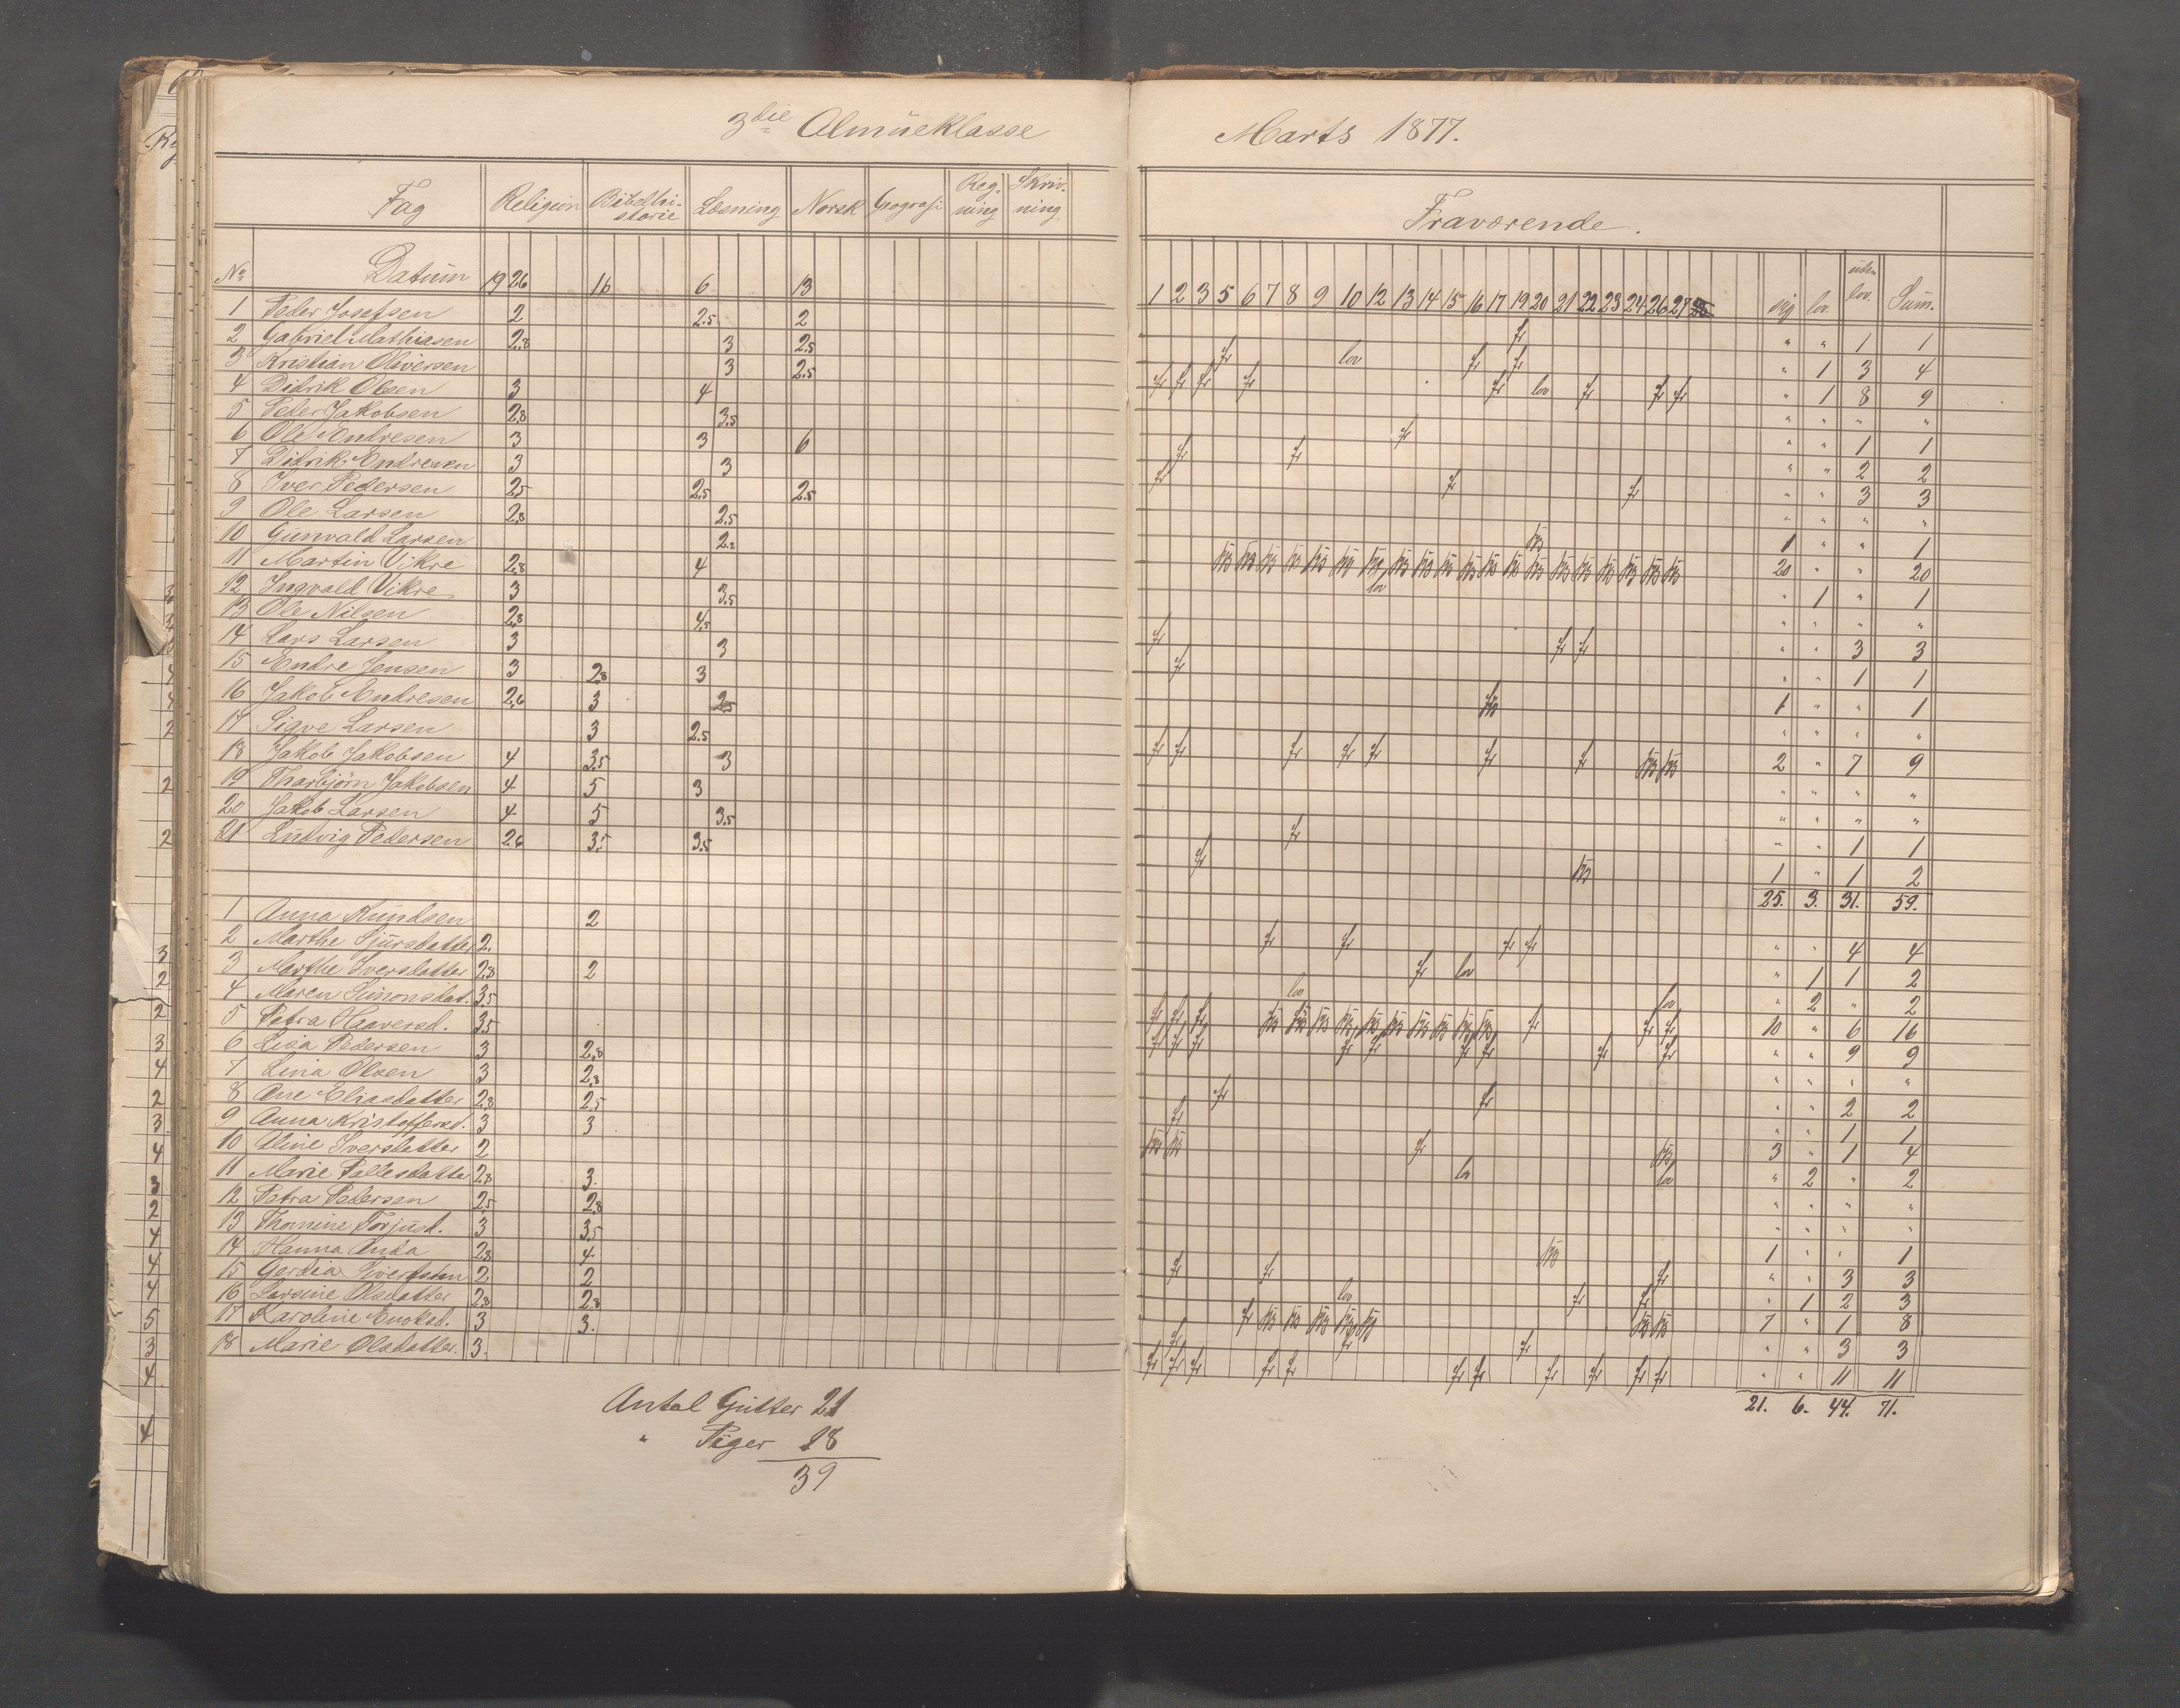 3die Almueklasse
Fag Religion Bibelhi-storie Læsning Norsk Geografi Reg-ning Skriv-ning
No Datum 19 26 16 6 13
1 Peder Josefsen 2 2.5 2
2 Gabriel Mathiasen 2.8 3 2.5
3 Kristian Oliversen 3 2.5
4 Didrik Olsen 3 4
5 Peder Jakobsen 2.8 3.5
6 Ole Endresen 3 3 6
7 Didrik Endresen 3 3
8 Iver Pedersen 2.5 2.5 2.5
9 Ole Larsen 2.8 2.5
10 Gunvald Larsen 2.2
11 Martin Vikre 2.8 4
12 Ingvald Vikre 3 3.5
13 Ole Nilsen 2.8 4.5
14 Lars Larsen 3 3
15 Endre Jensen 3 2.8 3
16 Jakob Endresen 2.6 3 2.5
17 Sigve Larsen 3 2.5
18 Jakob Jakobsen 4 3.5 3
19 Thorbjörn Jakobsen 4 5 3
20 Jakob Larsen 4 5 3.5
21 Ludvig Pedersen 2.6 3.5 3.5
1 Anna Knudsen 2
2 Marthe Sjursdatter 2.
3 Marthe Iversdatter 2.8 2
4 Maren Simonsdat. 3.5
5 Petra Haaversd. 3.5
6 Lisa Pedersen 3 2.8
7 Lina Olsen 3 2.8
8 Ane Eliasdatter 2.8 2.5
9 Anna Kristoffersd. 3 3
10 Oline Iversdatter 2
11 Marie Pallesdatter 2.8 3.
12 Petra Pedersen 2.5 2.8
13 Thomine Torjusd. 3 3.5
14 Hanna Anda 2.8 4
15 Gerdia Sivertsen 2. 2
16 Larsine Olsdatter 2.8 2.8
17 Karoline Enoksd. 3 3.
18 Marie Olsdatter. 3.
Antal Gutter 21
" Piger 18
39
Marts 1877.
Fraværende.
1 2 3 5 6 7 8 9 10 12 13 14 15 16 17 19 20 21 22 23 24 26 27 syg lov. uden lov. Sum.
fr " " 1 1
fr lov fr fr " 1 3 4
fr fr fr fr fr lov fr fr fr " 1 8 9
" " " "
fr " " 1 1
fr fr " " 2 2
fr fr fr " " 3 3
" " " "
1 " " 1
20 " " 20
lov " 1 " 1
" " " "
fr fr fr " " 3 3
fr " " 1 1
1 " " 1
" " " "
fr fr fr fr fr fr fr 2 " 7 9
" " " "
" " " "
fr " " 1 1
fr 1 " 1 2
25. 3. 31. 59.
fr fr fr fr " " 4 4
fr lov " 1 1 2
lov lov " 2 " 2
fr fr fr fr fr fr 10 " 6 16
fr fr fr fr fr fr fr fr fr " " 9 9
" " " "
fr fr " " 2 2
fr " " 1 1
fr 3 " 1 4
lov lov " 2 " 2
" " " "
" " " "
1 " " 1
fr fr fr " " 3 3
lov fr fr " 1 2 3
fr 7 " 1 8
fr fr fr " " 3 3
fr fr fr fr fr fr fr fr fr fr fr " " 11 11
21. 6. 44. 71.